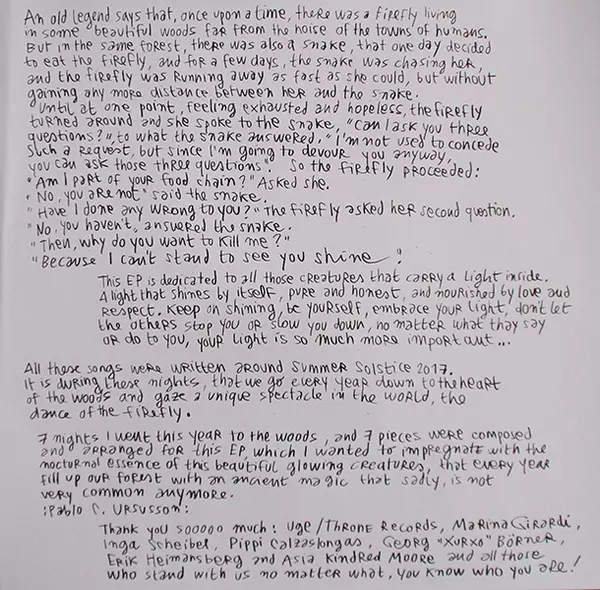 An old legend says that, once upon a time, there was a firefly living
in some beautiful woods far from the noise of the towns of humans.
But in the same forest, there was also a snake, that one day decided
to eat the firefly, and for a few days, the snake was chasing her,
and the firefly was running away as fast as she could, but without
gaining any more distance between her and the snake.
Until at one point, feeling exhausted and hopeless, the firefly
turned around and she spoke to the snake, "Can I ask you three
questions?", to what the snake answered, "I'm not used to concede
such a request, but since I'm going to devour you anyway,
you can ask those three questions". So the firefly proceeded:
"Am I part of your food chain?" Asked she.
"No, you are not" said the snake.
"Have I done any wrong to you?" The firefly asked her second question.
"No, you haven't, answered the snake.
"Then, why do you want to kill me?"
"Because I can't stand to see you shine"!
This EP is dedicated to all those creatures that carry a light inside.
A light that shines by itself, pure and honest, and nourished by love and
respect. Keep on shining, be yourself, embrace your light, don't let
the others stop you or slow you down, no matter what they say
or do to you, your light is so much more important...
All these songs were written around Summer Solstice 2017.
It is during these nights, that we go every year down to the heart
of the woods and gaze a unique spectacle in the world, the
dance of the firefly.
7 nights I went this year to the woods, and 7 pieces were composed
and arranged for this EP which I wanted to impregnate with the
nocturnal essence of this beautiful glowing creatures, that every year
fill up our forest with an ancient magic that sadly, is not
very common anymore.
:Pablo C. Ursusson:
Thank you sooooo much: Uge/Throne Records, Marina Girardi,
Inga Scheibel, Pippi Calzaslongas, Georg "Xurxo" Börner,
Erik Heimansberg and Asia Kindred Moore and all those
who stand with us no matter what, you know who you are!